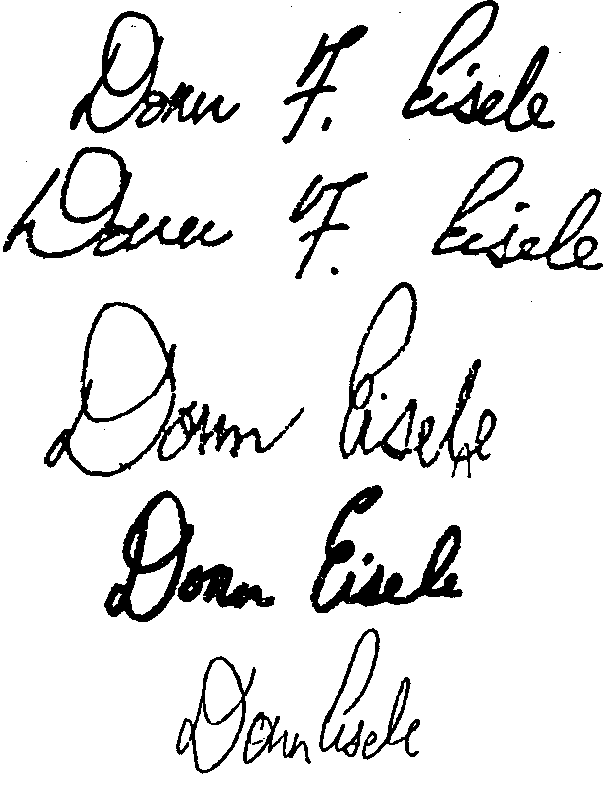 Donn F. Eisele
Donn F. Eisele
Donn Eisele
Donn Eisele
Donn Eisele